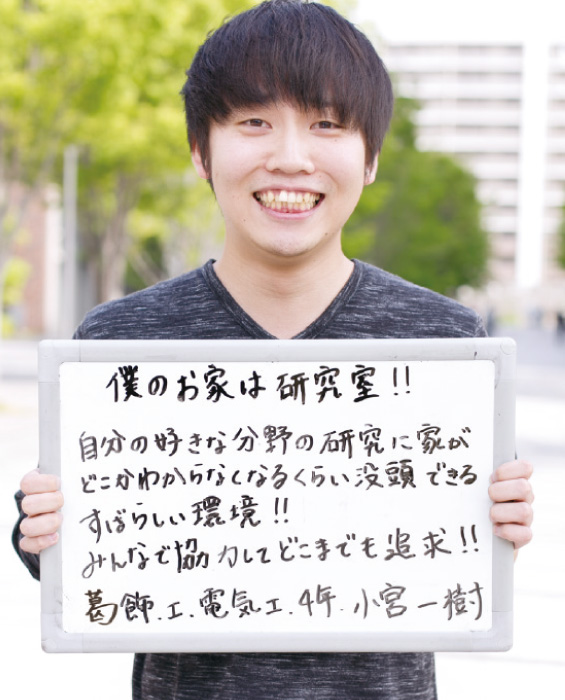 僕のお家は研究室!!
自分の好きな分野の研究に家が
どこかわからなくなるくらい没頭できる
すばらしい環境!!
みんなで協力してどこまでも追求!!
葛飾.工.電気工.4年.小宮一樹